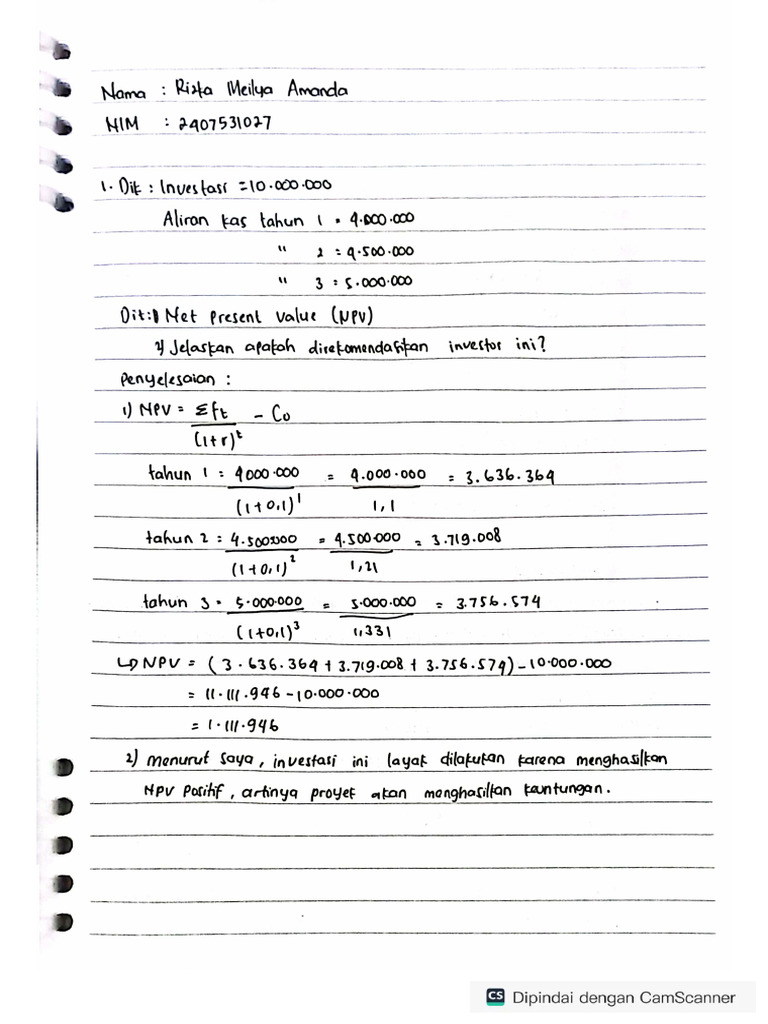 Nama : Rista Meilya Amanda
NIM : 2407531027
1. Dik : Investasi = 10.000.000
Aliran kas tahun 1 = 4.000.000
" 2 = 4.500.000
" 3 = 5.000.000
Dit : 1) Net Present Value (NPV)
2) Jelaskan apakah direkomendasikan investor ini?
Penyelesaian :
1) NPV = Σft - Co
(1+r)^t
tahun 1 = 4000.000 = 4.000.000 = 3.636.364
(1+0,1)^1 1,1
tahun 2 = 4.500.000 = 4.500.000 = 3.719.008
(1+0,1)^2 1,21
tahun 3 = 5.000.000 = 5.000.000 = 3.756.574
(1+0,1)^3 1,331
↳ NPV = (3.636.364 + 3.719.008 + 3.756.574) - 10.000.000
= 11.111.946 - 10.000.000
= 1.111.946
2) menurut saya, investasi ini layak dilakukan karena menghasilkan
NPV Positif, artinya proyek akan menghasilkan keuntungan.
CS Dipindai dengan CamScanner